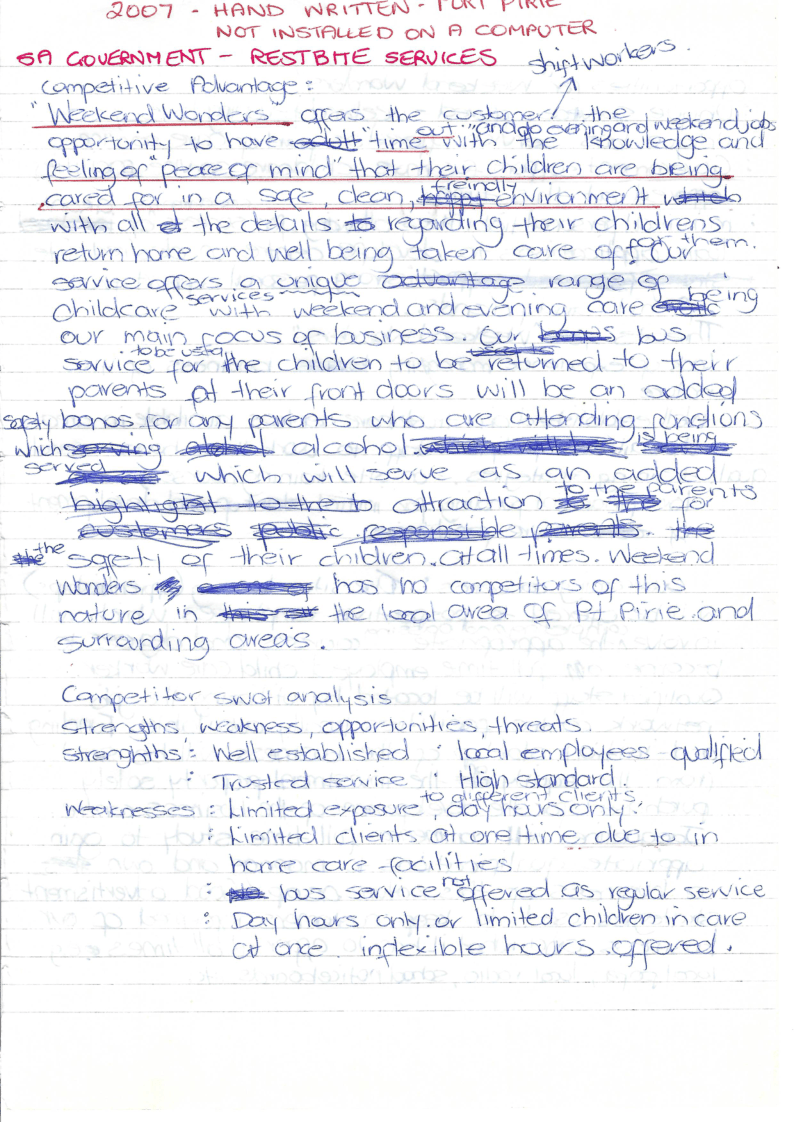 2007 - HAND WRITTEN - PORT PIRIE
NOT INSTALLED ON A COMPUTER
SA GOVERNMENT - RESTBITE SERVICES
shiftworkers.
Competitive Advantage:
"Weekend Wonders" offers the customer! the
opportunity to have "time out" "and do evening and weekend jobs with the knowledge and
feeling of "peace of mind" that their children are being
cared for in a safe, clean, freindly environment
with all the details regarding their childrens
return home and well being taken care of for them. Our
service offers a unique range of
childcare services with weekend and evening care being
our main focus of business. Our bus
service to be used for the children to be returned to their
parents at their front doors will be an added
safety bonos for any parents who are attending functions
which alcohol is being
served which will serve as an added
attraction to the parents for
the safety of their children. at all times. Weekend
Wonders has no competitors of this
nature in the local area of Pt Pirie and
surrounding areas.
Competitor swot analysis
Strengths, weakness, opportunities, threats.
Strenghths: Well established : local employees - qualified
: Trusted service : High standard.
Weaknesses: Limited exposure to different clients, day hours only.
: Limited clients at one time due to in
home care facilities
: bus service not offered as regular service
: Day hours only. or limited children in care
at once inflexible hours offered.